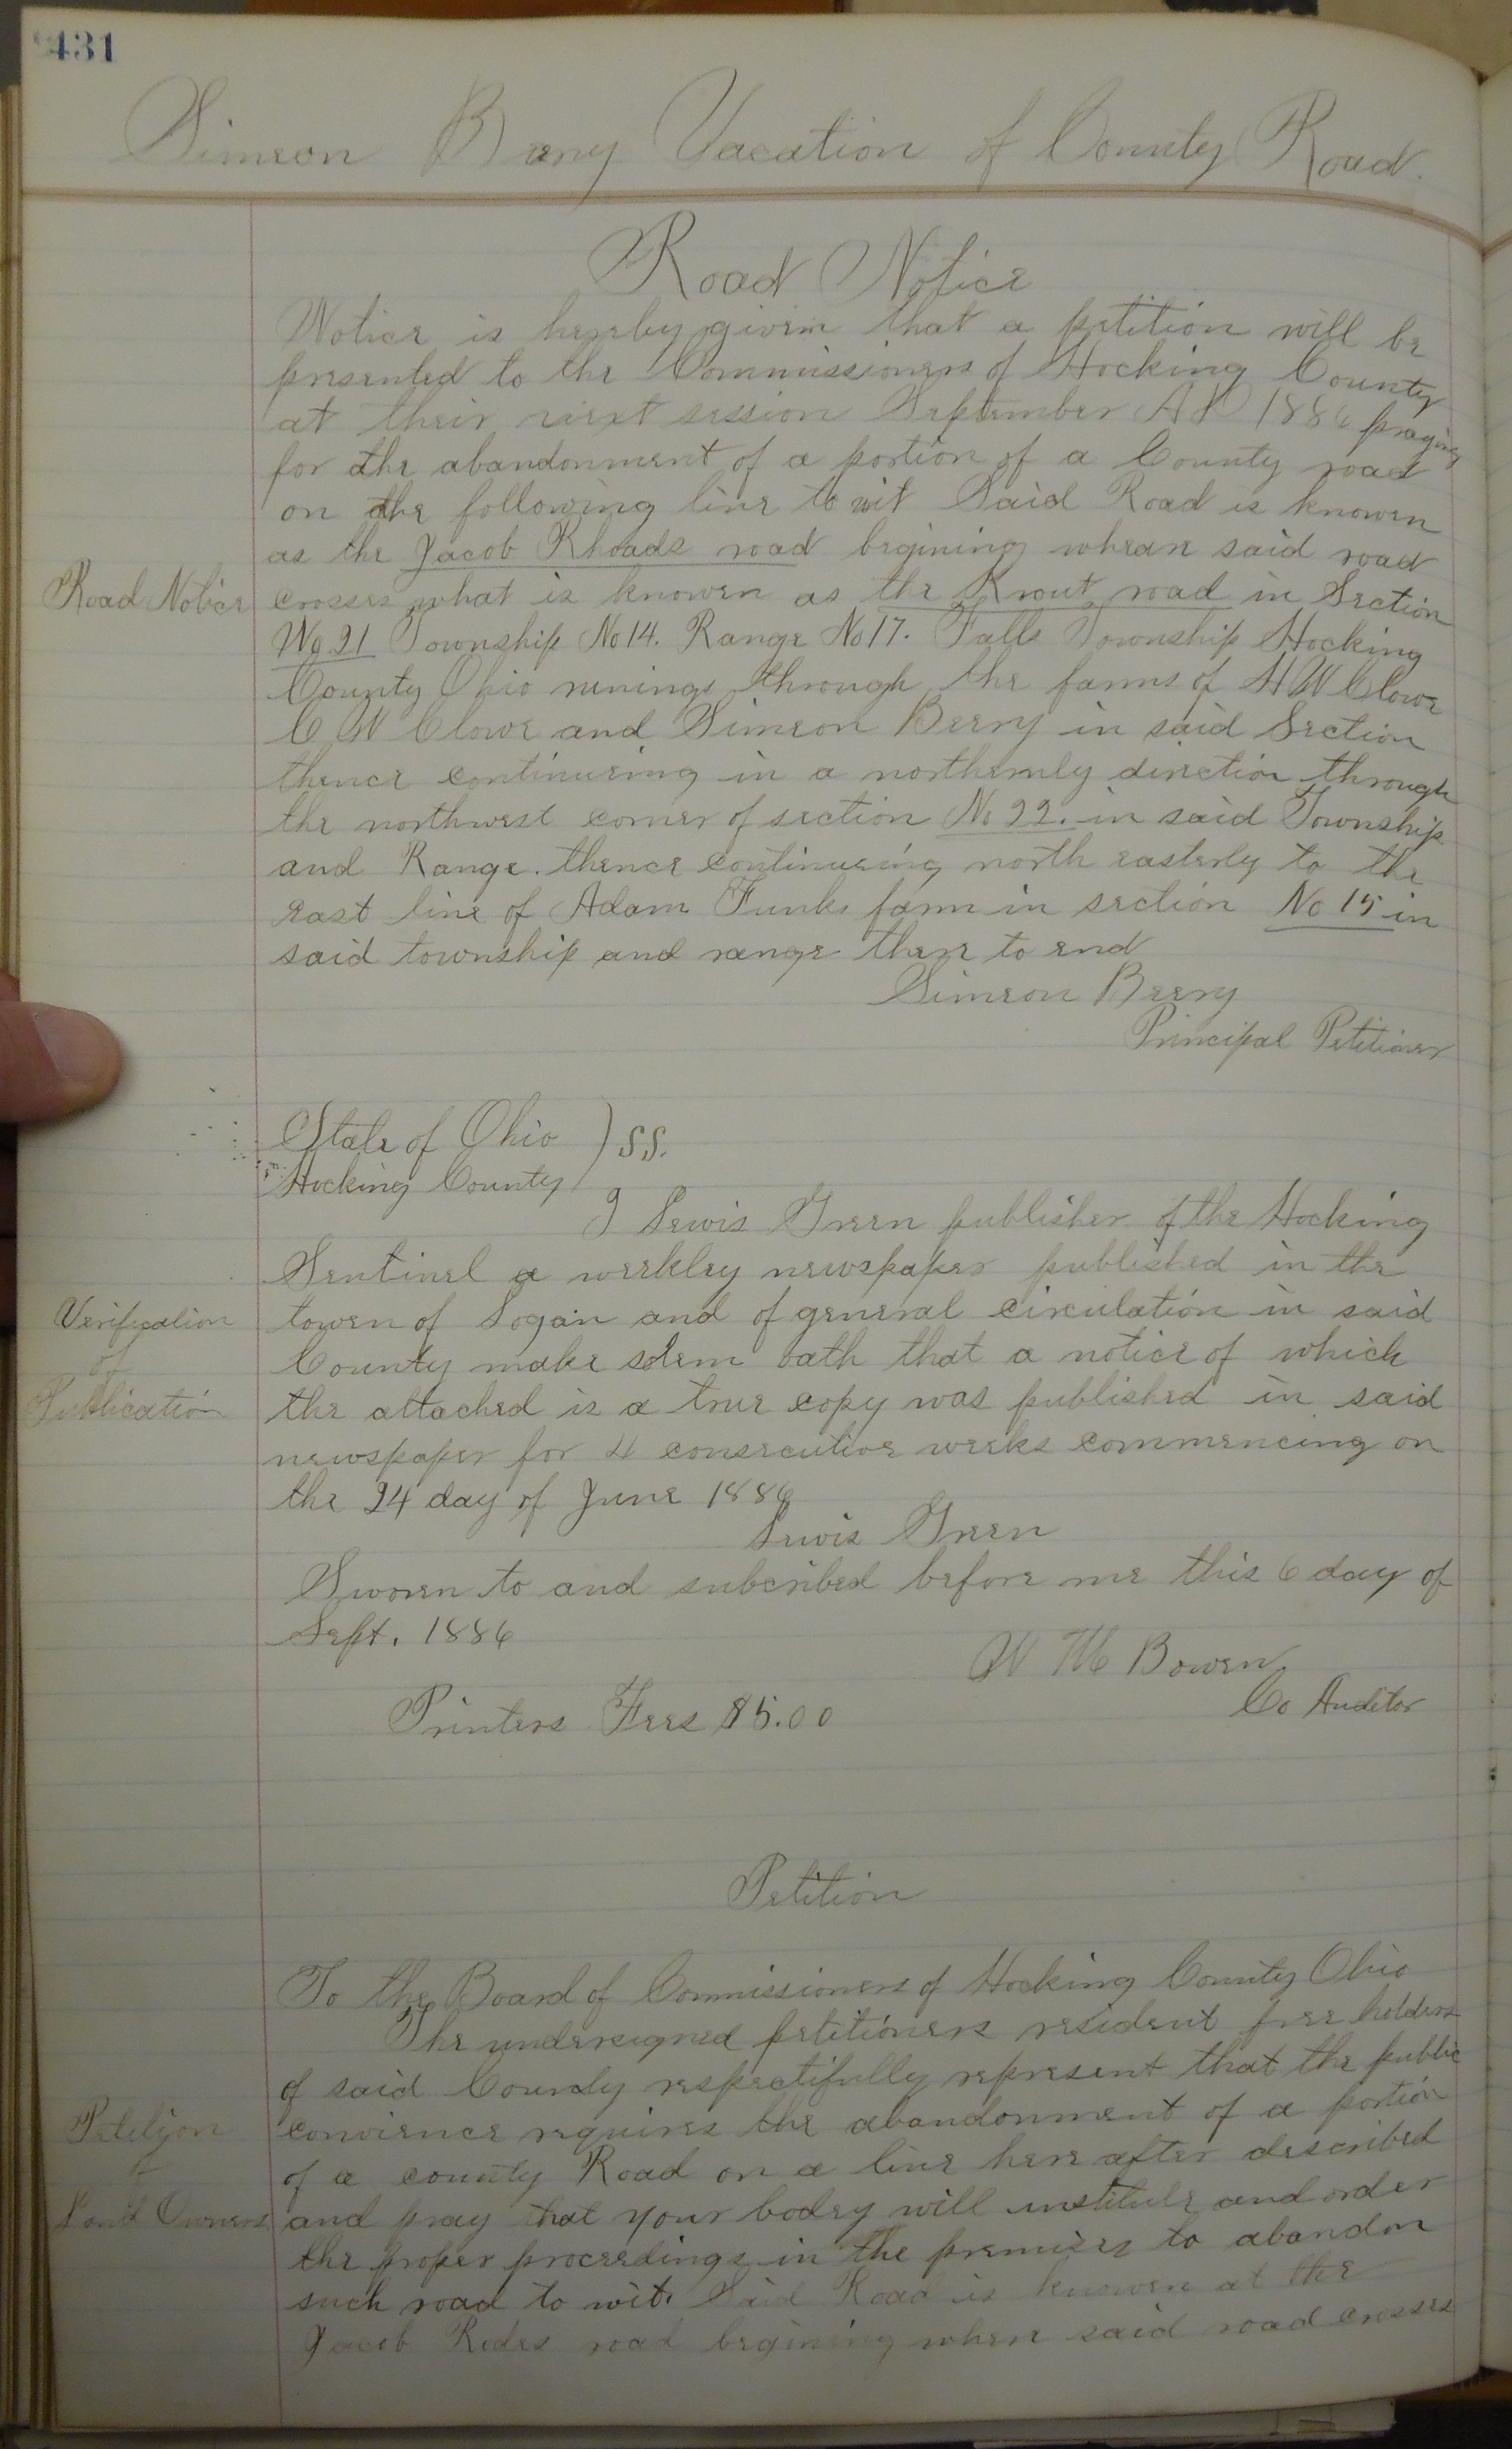 431
Simeon Beery Vacation of County Road.
Road Notice
Notice is hereby given that a petition will be
presented to the Commissioners of Hocking County
at their next session September AD 1886 praying
for the abandonment of a portion of a County road
on the following line to wit Said Road is known
as the Jacob Rhoads road begining wheare said road
Road Notice
crosses what is known as the Krout road in Section
No 21 Township No 14. Range No 17. Falls Township Hocking
County Ohio runings through the farms of H W Clowe
C W Clowe and Simeon Beery in said Section
thence continueing in a northernly direction through
the northwest corner of section No 22. in said Township
and Range. thence continueing north easterly to the
East line of Adam Funks farm in section No 15 in
said township and range there to end
Simeon Beery
Principal Petitioner
State of Ohio ) SS.
Hocking County
I Lewis Green publisher of the Hocking
Sentinel a weekley newspaper published in the
Verification
of
Publication
towen of Logan and of general circulation in said
County make solem oath that a notice of which
the attached is a true copy was published in said
newspaper for 4 consecutive weeks commencing on
the 24 day of June 1886
Lewis Green
Sworen to and subcribed before me this 6 day of
Sept. 1886
W M Bowen
Co Auditor
Printers Fees $5.00
Petition
To the Board of Commissioners of Hocking County Ohio
The undersigned petitioners resident free holders
of said County respectifully represent that the public
Petition
of
Land Owners
convience requires the abandonment of a portion
of a county Road on a line here after described
and pray that your bodey will institute and order
the proper proceedings in the premises to abandon
such road to wit. Said Road is knowen at the
Jacob Rodes road begining when said road crosses